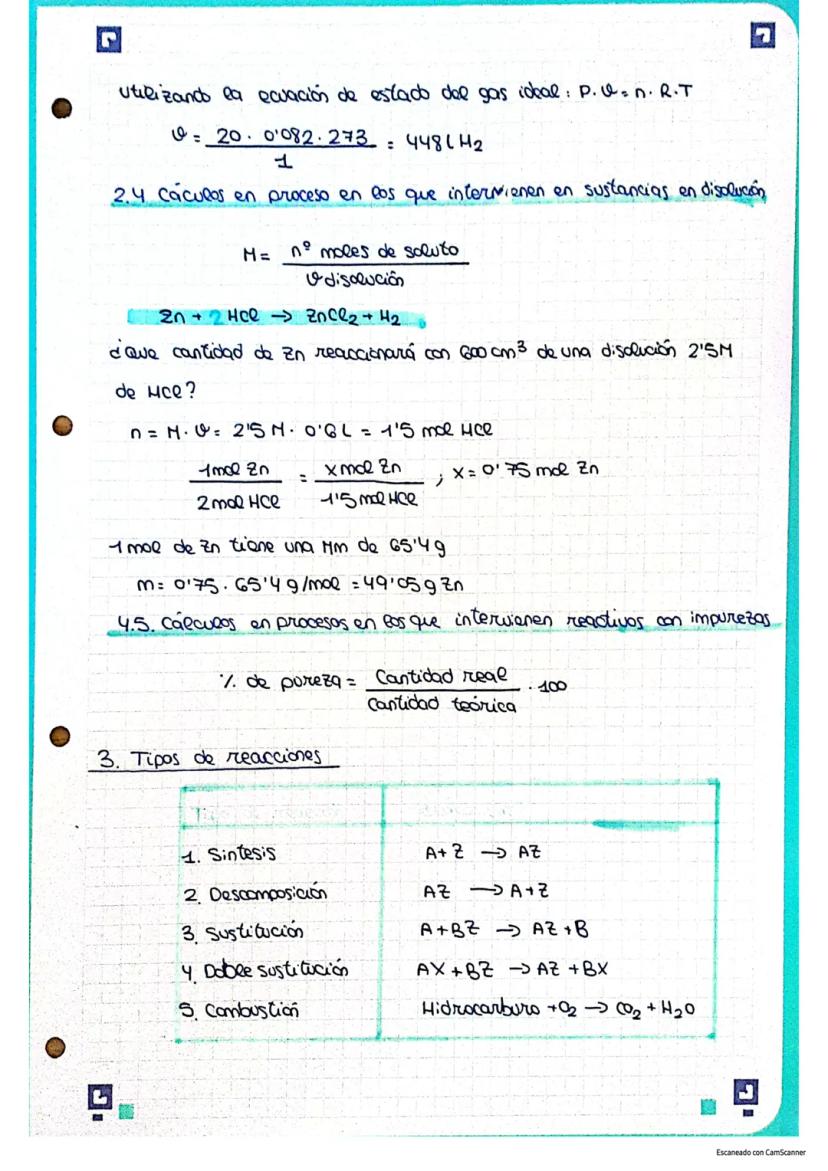 utilizando la ecuación de estado del gas ideal: P.V = n.R.T
V = 20 . 0'082 . 273 / 1 = 448 L H2
2.4 Cáculos en proceso en los que intervienen en sustancias en disolución
M = nº moles de soluto / V disolución
Zn + 2 HCl → ZnCl2 + H2
¿Que cantidad de Zn reaccionará con 600 cm3 de una disolución 2'5M
de HCl?
n = M.V = 2'5 M. 0'6 L = 1'5 mol HCl
1 mol Zn / 2 mol HCl = x mol Zn / 1'5 mol HCl ; x = 0'75 mol Zn
1 mol de Zn tiene una Mm de 65'4 g
m = 0'75 . 65'4 g/mol = 49'05 g Zn
4.5. Cálculos en procesos en los que intervienen reactivos con impurezas
% de pureza = Cantidad real / Cantidad teórica . 100
3. Tipos de reacciones
1. Síntesis A + Z → AZ
2. Descomposición AZ → A + Z
3. Sustitución A + BZ → AZ + B
4. Doble sustitución AX + BZ → AZ + BX
5. Combustión Hidrocarburo + O2 → CO2 + H2O
Escaneado con CamScanner